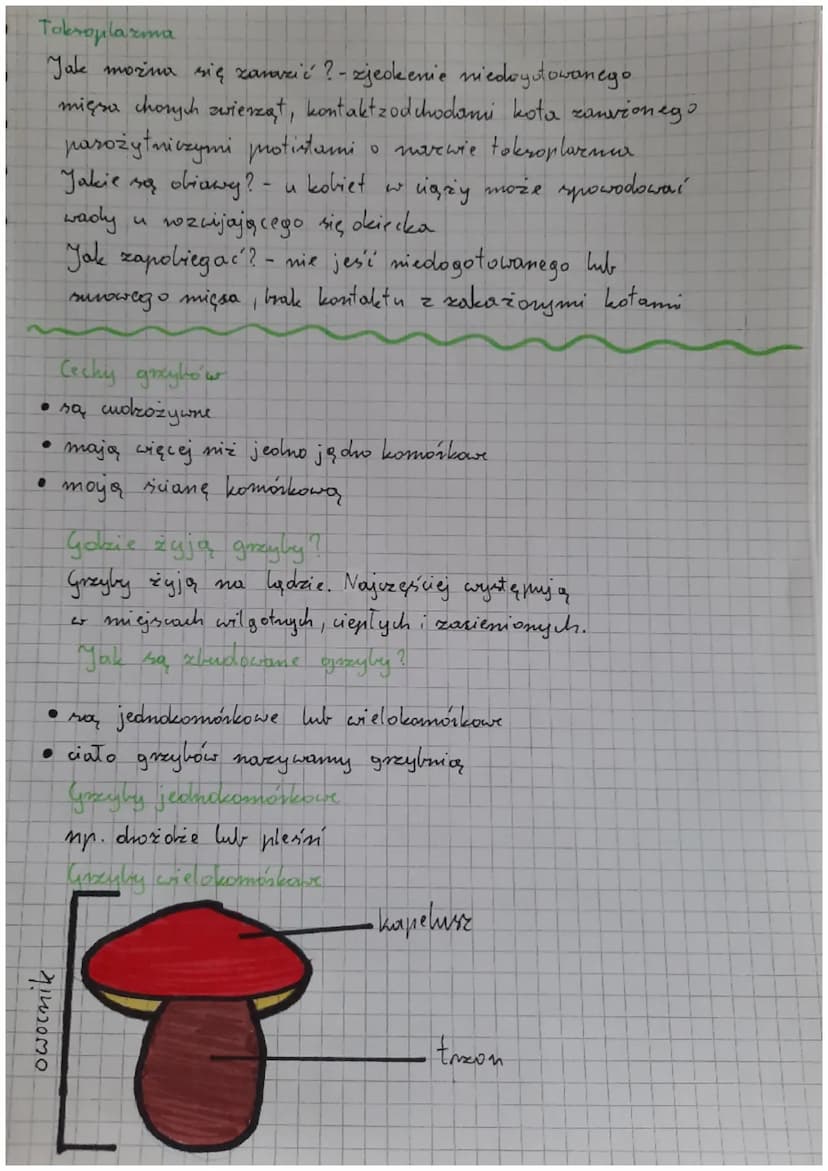 Toksoplazma
Jak można się zarazić? - zjedzenie niedogotowanego
mięsa chorych zwierząt, kontakt z odchodami kota zarażonego
pasożytniczymi protistami o nazwie toksoplazma
Jakie są obiawy? - u kobiet w ciąży może spowodować
wady u rozwijającego się dziecka
Jak zapobiegać? - nie jeść niedogotowanego lub
surowego mięsa, brak kontaktu z zakażonymi kotami
Cechy grzybów
• są cudzożywne
• mają więcej niż jedno jądro komórkowe
• mają ścianę komórkową
Gdzie żyją grzyby?
Grzyby żyją na lądzie. Najczęściej występują
w miejscach wilgotnych, ciepłych i zacienionych.
Jak są zbudowane grzyby?
• są jednokomórkowe lub wielokomórkowe
• ciało grzybów nazywamy grzybnią
Grzyby jednokomórkowe
np. drożdże lub pleśń
Grzyby wielokomórkowe
kapelusz
owocnik
trzon